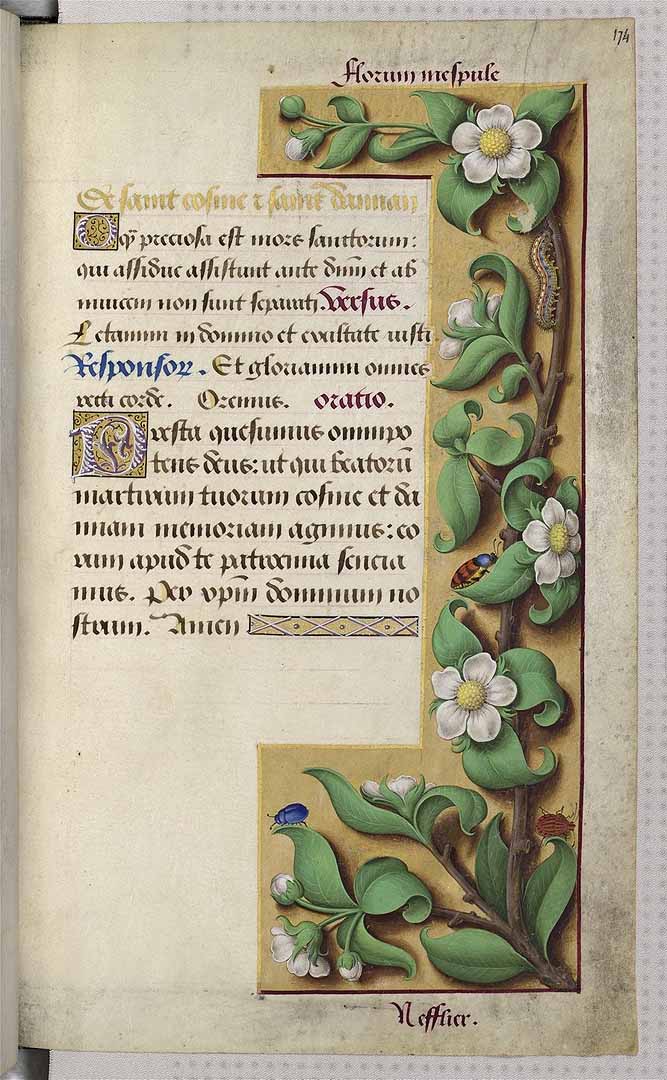 174
florum mespule
De saint cosme ⁊ saint damian
O q̃ preciosa est mors sanctorum:
qui assidue assistunt ante dñm et ab
inuicem non sunt separati Versus.
Letamini in domino et exultate iusti
Responsor. Et gloriamini omnes
recti corde. Oremus. oratio.
Presta quesumus omnipo
tens deus: ut qui beatorũ
martirum tuorum cosme et da
miani memoriam agimus: eo
rum apud te patrocinia sencia
mus. Per xp̃m dominum no
strum. Amen
Nefflier.